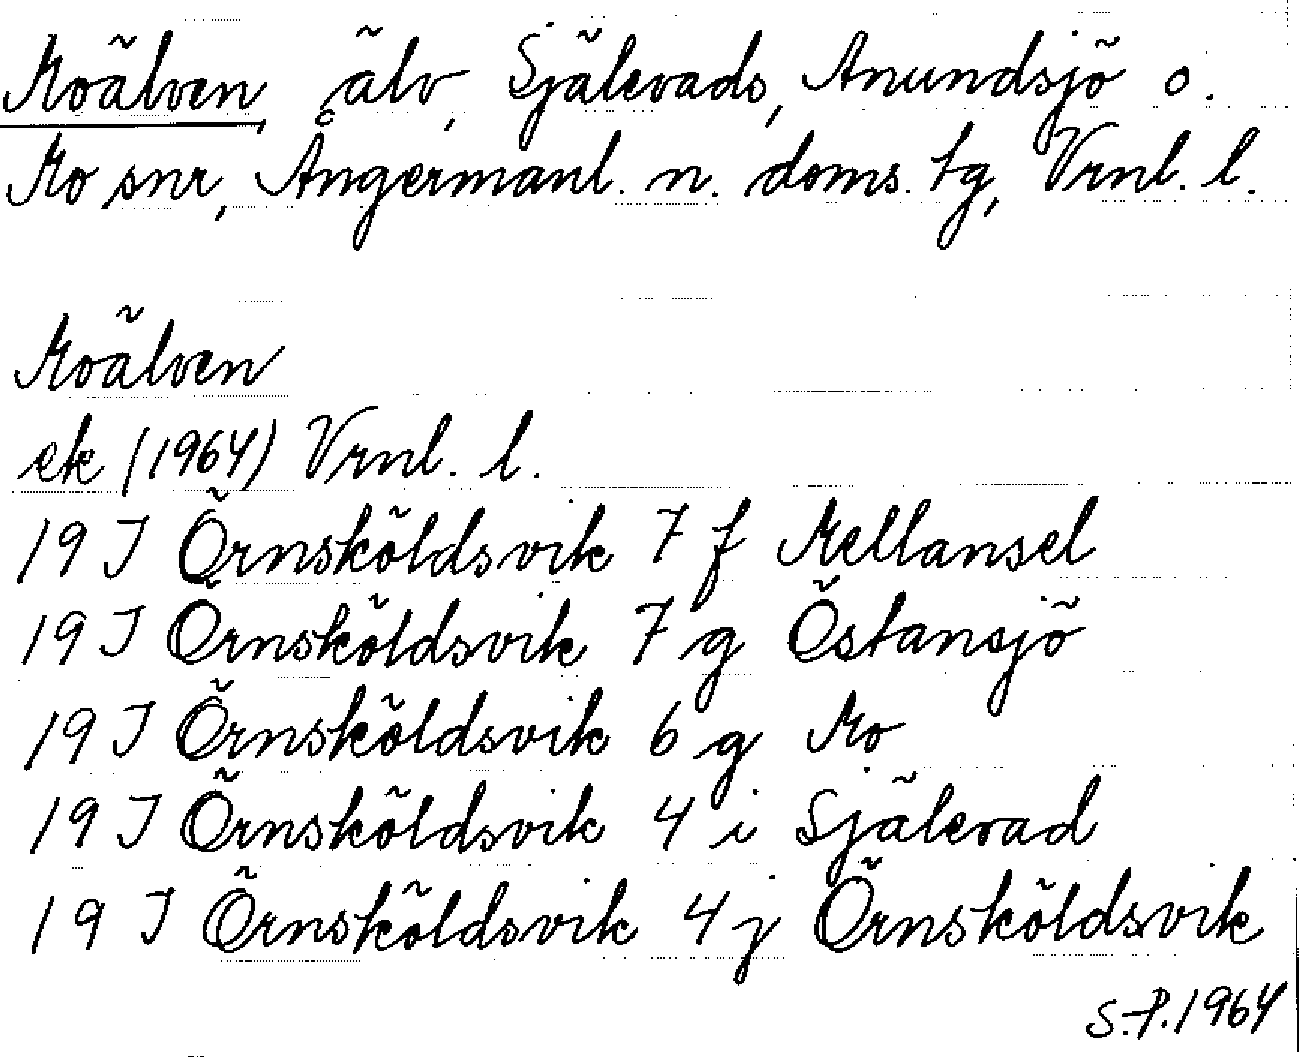 Moälven, älv, Själevads, Anundsjö o.
Mo snr, Ångermanl. n. doms. tg, Vrnl. l.
Moälven
ek (1964) Vrnl. l.
19 J Örnsköldsvik 7 f Mellansel
19 J Örnsköldsvik 7 g Östansjö
19 J Örnsköldsvik 6 g Mo
19 J Örnsköldsvik 4 i Själevad
19 J Örnsköldsvik 4 j Örnsköldsvik
S.-P. 1964